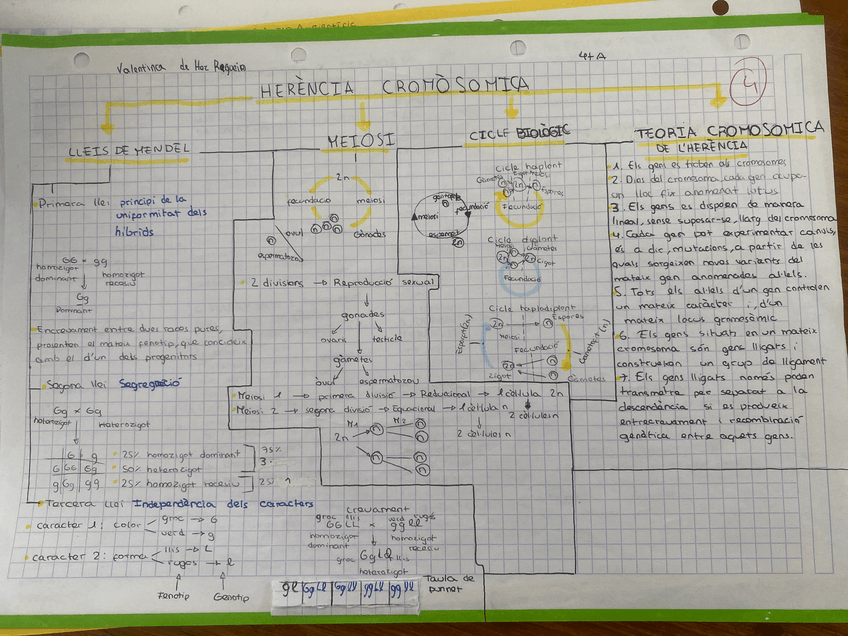 Valentina de Haz
4t A
4
HERÈNCIA CROMÒSOMICA
LLEIS DE MENDEL
Primera llei principi de la
uniformitat dels
híbrids
GG × gg
homozigot
dominant
homozigot
recesiu
Gg
Dominant
Encreuament entre dues races pures,
presenten el mateix fenotip, que coincideix
amb el d'un dels progenitors
Segona llei Segregació
Gg × Gg
heterozigot
Heterozigot
G g
G GG Gg
g Gg gg
25% homozigot dominant
50% heterozigot
25% homozigot recesiu
75%
3
25%
Tercera llei Independència dels caracters
caracter 1: color
groc → G
verd → g
caracter 2: forma
llis → L
rugos → l
Fenotip
Genotip
MEIOSI
2n
fecundacio
meiosi
n n n n
òvul
gònades
n
espermatozou
2 divisions → Reproducció sexual
gonades
ovaris
testicle
gàmetes
òvul
espermatozou
Meiosi 1 → primera divisió → Reduccional → 1 cèl·lula 2n
2 cèl·lules n
Meiosi 2 → segona divisió → Equacional → 1 cèl·lula n
2 cèl·lules n
M1
M2
2n
n n
n n n n
Creuament
groc llis
verd rugós
GGLL × ggll
homozigot
dominant
homozigot
recesiu
groc GgLl llis
heterozigot
Taula de
punnet
CICLE BIOLÒGIC
gàmetes
n
meiosi
fecundació
2n
Cicle haplont
Gàmetes
2n
n
Espores
Fecundació
Cicle diplont
Gàmetes
2n n 2n
Zigot
Fecundació
Cicle haplodiplont
2n
n
Espores
meiosi
Fecundació
2n
n
n
Zigot
Gàmetes
TEORIA CROMOSOMICA
DE L'HERÈNCIA
1. Els gens es troben als cromosomes
2. Dins del cromosoma, cada gen ocupa
un lloc fix anomenat lutus
3. Els gens es disposen de manera
lineal, sense suposar-se, llarg del cromosoma
4. Cada gen pot experimentar canvis,
és a dir, mutacions, a partir de les
quals sorgeixen noves variants del
mateix gen anomenades al·lels.
5. Tots els al·lels d'un gen controlen
un mateix caràcter i, d'un
mateix locus cromosòmic
6. Els gens situats en un mateix
cromosoma són gens lligats i
constitueixen un grup de lligament
7. Els gens lligats només poden
transmetre per separat a la
descendència si es produeix
entrecreuament i recombinació
genètica entre aquets gens.